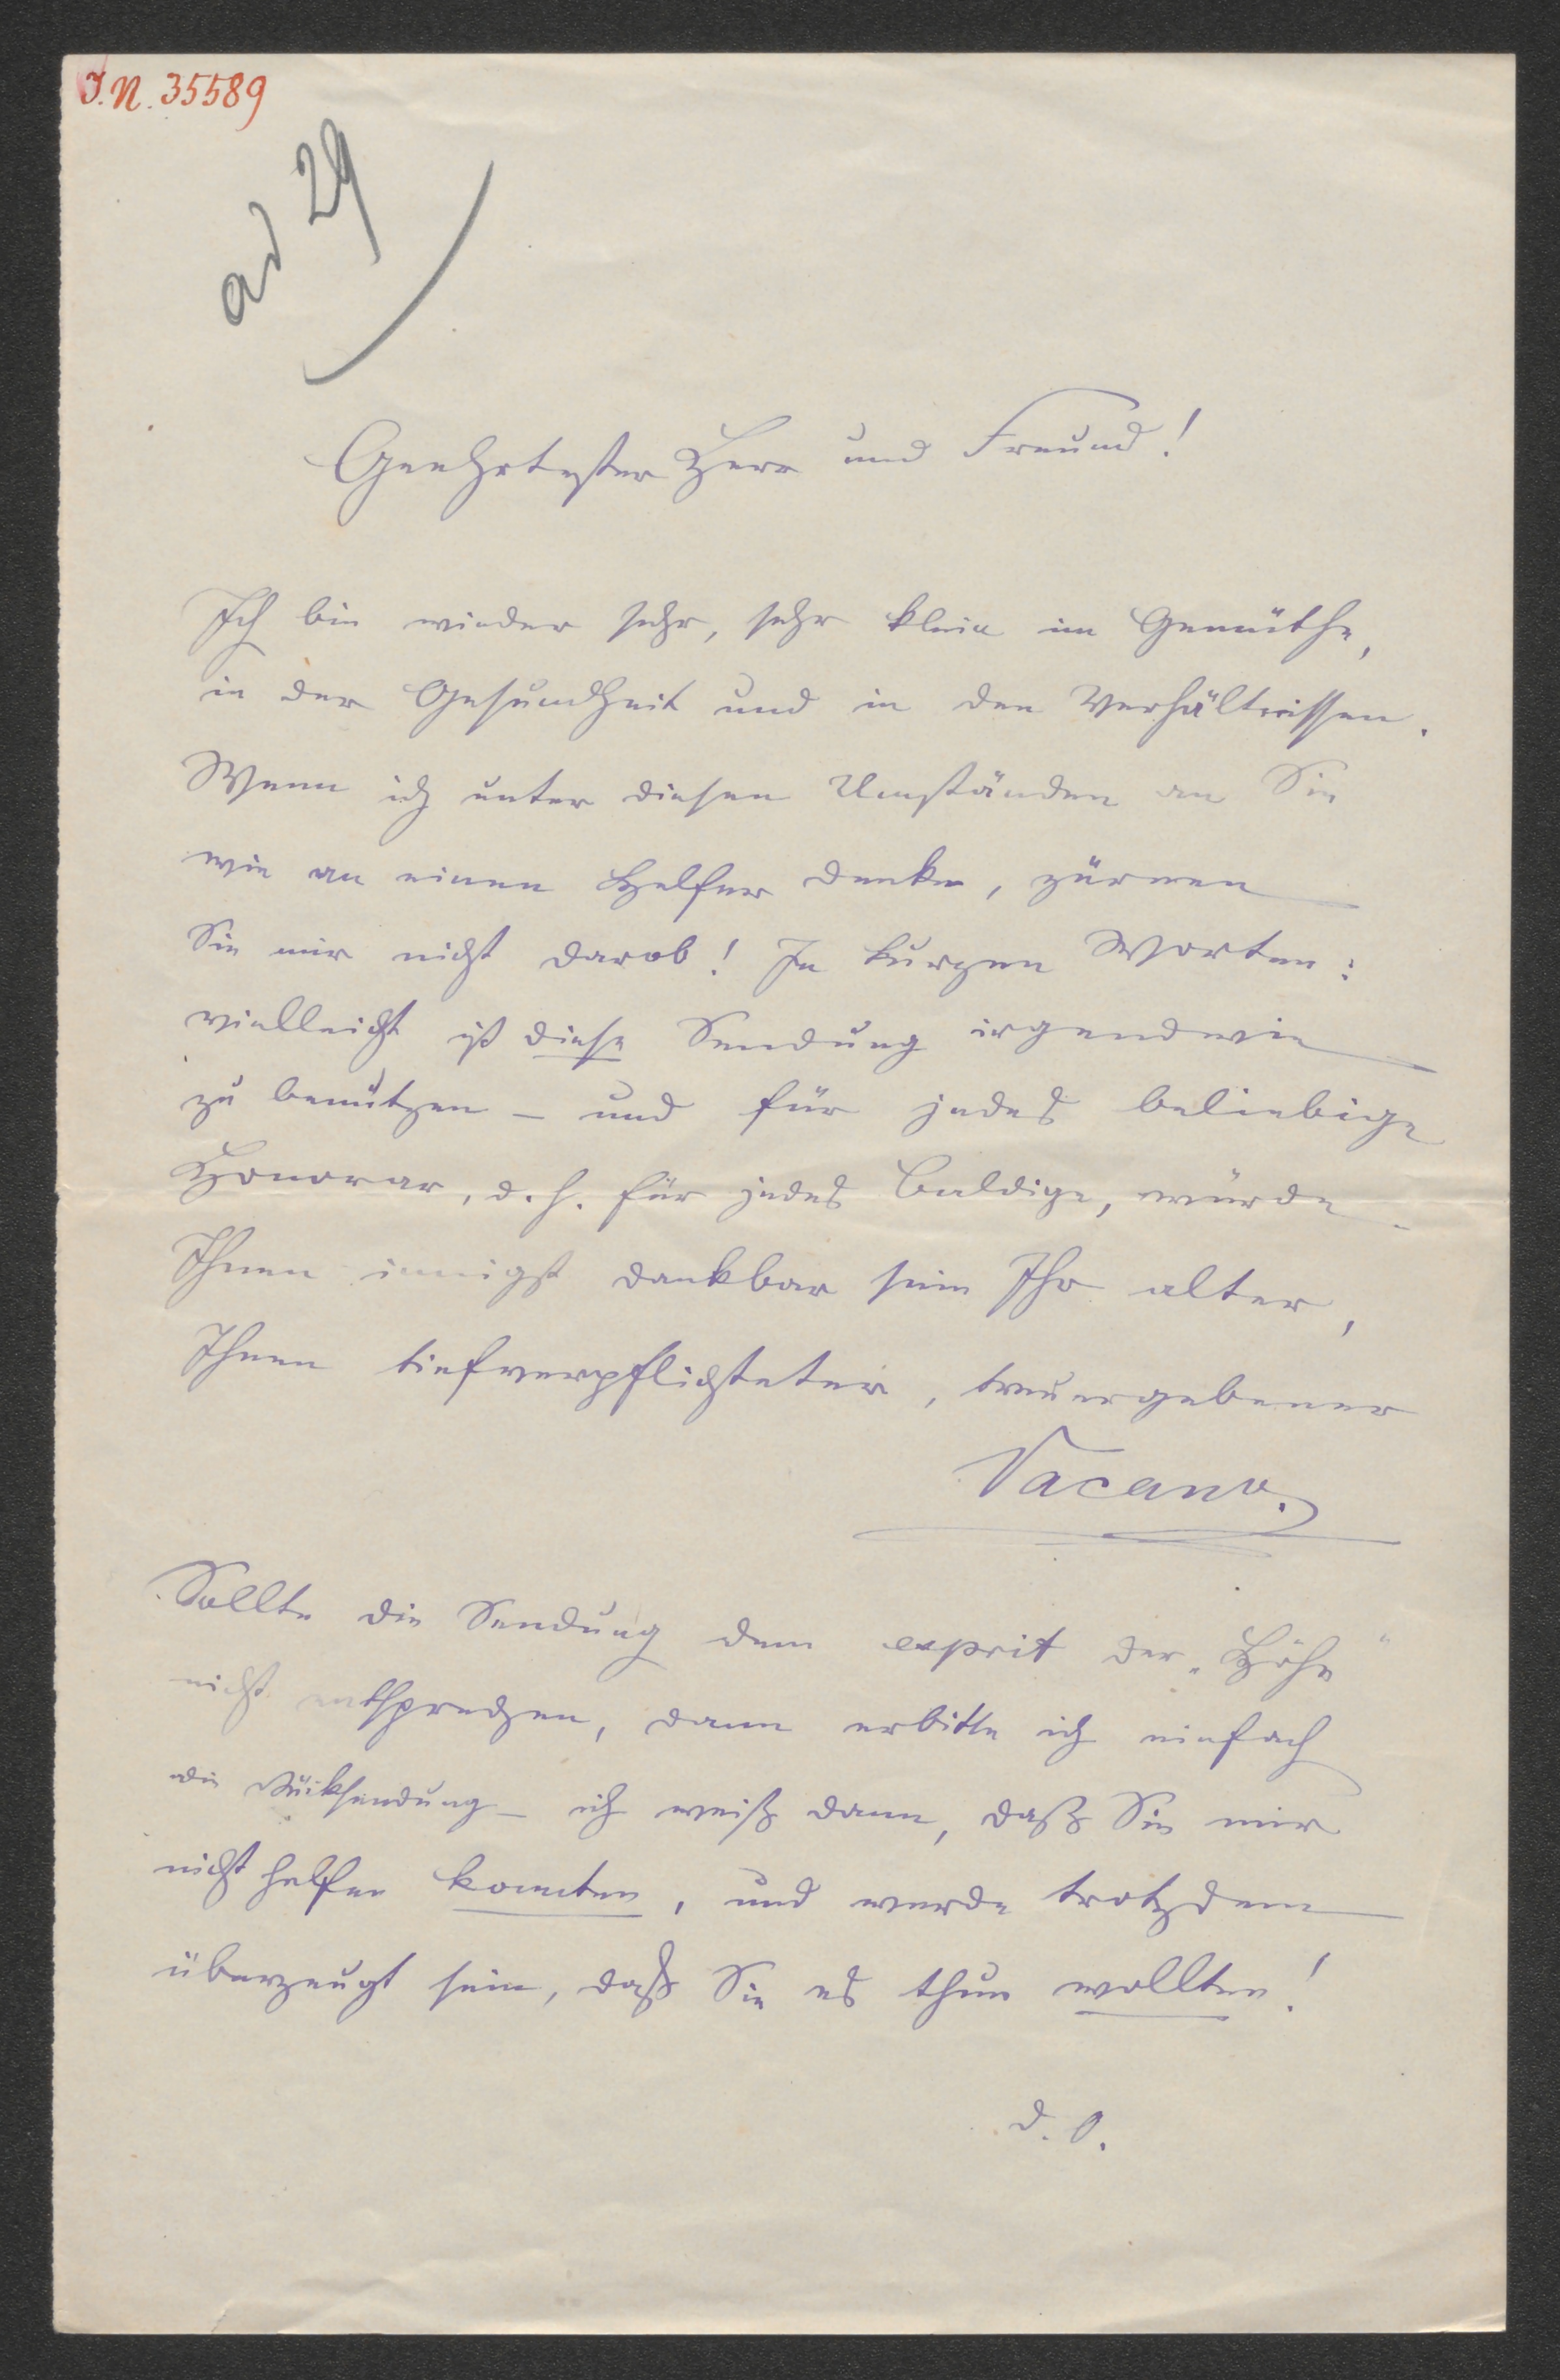 J.N. 35589
ad 29
Geehrtester Herr und Freund!
Ich bin wieder sehr, sehr klein im Gemüthe,
in der Gesundheit und in den Verhältnissen.
Wenn ich unter diesen Umständen an Sie
wie an einen Helfer denke, zürnen
Sie mir nicht darob! In kurzen Worten:
vielleicht ist diese Sendung irgendwie
zu benützen – und für jedes beliebige
Honorar, d. h. für jedes Baldige, würde
Ihnen innigst dankbar sein Ihr alter,
Ihnen tiefverpflichteter, treuergebener
Vacano.
Sollte die Sendung dem esprit der „Höhe“
nicht entsprechen, dann erbitte ich einfach
die Rücksendung – ich weiß dann, daß Sie mir
nicht helfen konnten, und werde trotzdem
überzeugt sein, daß Sie es thun wollten!
d. O.